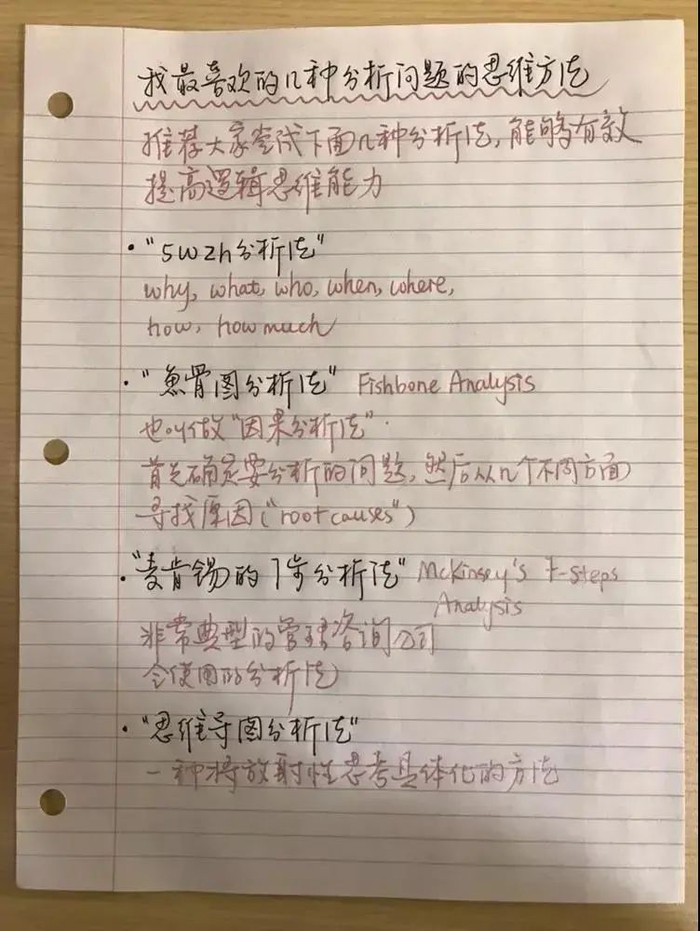 我最喜欢的几种分析问题的思维方法
推荐大家尝试下面几种分析法,能够有效
提高逻辑思维能力
· "5w2h分析法"
why, what, who, when, where,
how, how much
· "鱼骨图分析法" Fishbone Analysis
也叫做"因果分析法".
首先确定要分析的问题,然后从几个不同方面
寻找原因("root causes")
· "麦肯锡的7步分析法" Mckinsey's 7-steps
Analysis
非常典型的管理咨询公司
会使用的分析法
· "思维导图分析法"
一种将放射性思考具体化的方法